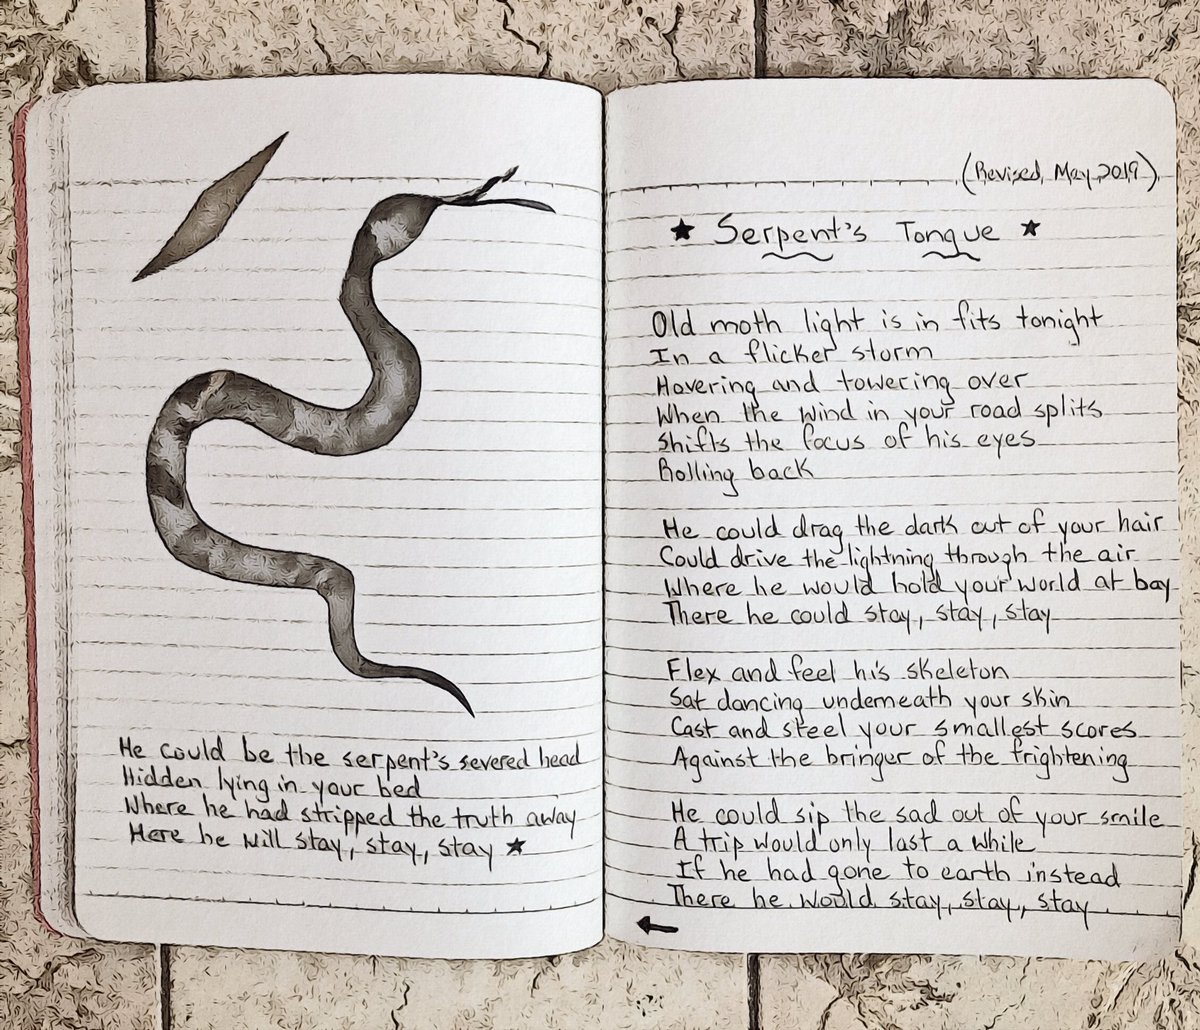 (Revised, May 2019)
★ Serpent's Tongue ★
Old moth light is in fits tonight
In a flicker storm
Hovering and towering over
When the wind in your road splits
Shifts the focus of his eyes
Rolling back
He could drag the dark out of your hair
Could drive the lightning through the air
Where he would hold your world at bay
There he could stay, stay, stay
Flex and feel his skeleton
Sat dancing underneath your skin
Cast and steel your smallest scores
Against the bringer of the frightening
He could sip the sad out of your smile
A trip would only last a while
If he had gone to earth instead
There he would stay, stay, stay
←
He could be the serpent's severed head
Hidden lying in your bed
Where he had stripped the truth away
Here he will stay, stay, stay ★